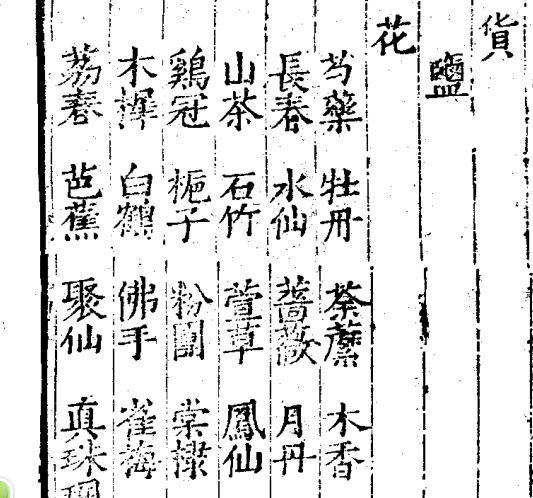 貨
鹽
花
芍藥 牡丹 荼䕷 木香
長春 水仙 薔薇 月丹
山茶 石竹 萱草 鳳仙
鷄冠 梔子 粉團 棠棣
木樨 白鶴 佛手 雀梅
荔春 芭蕉 聚仙 真珠